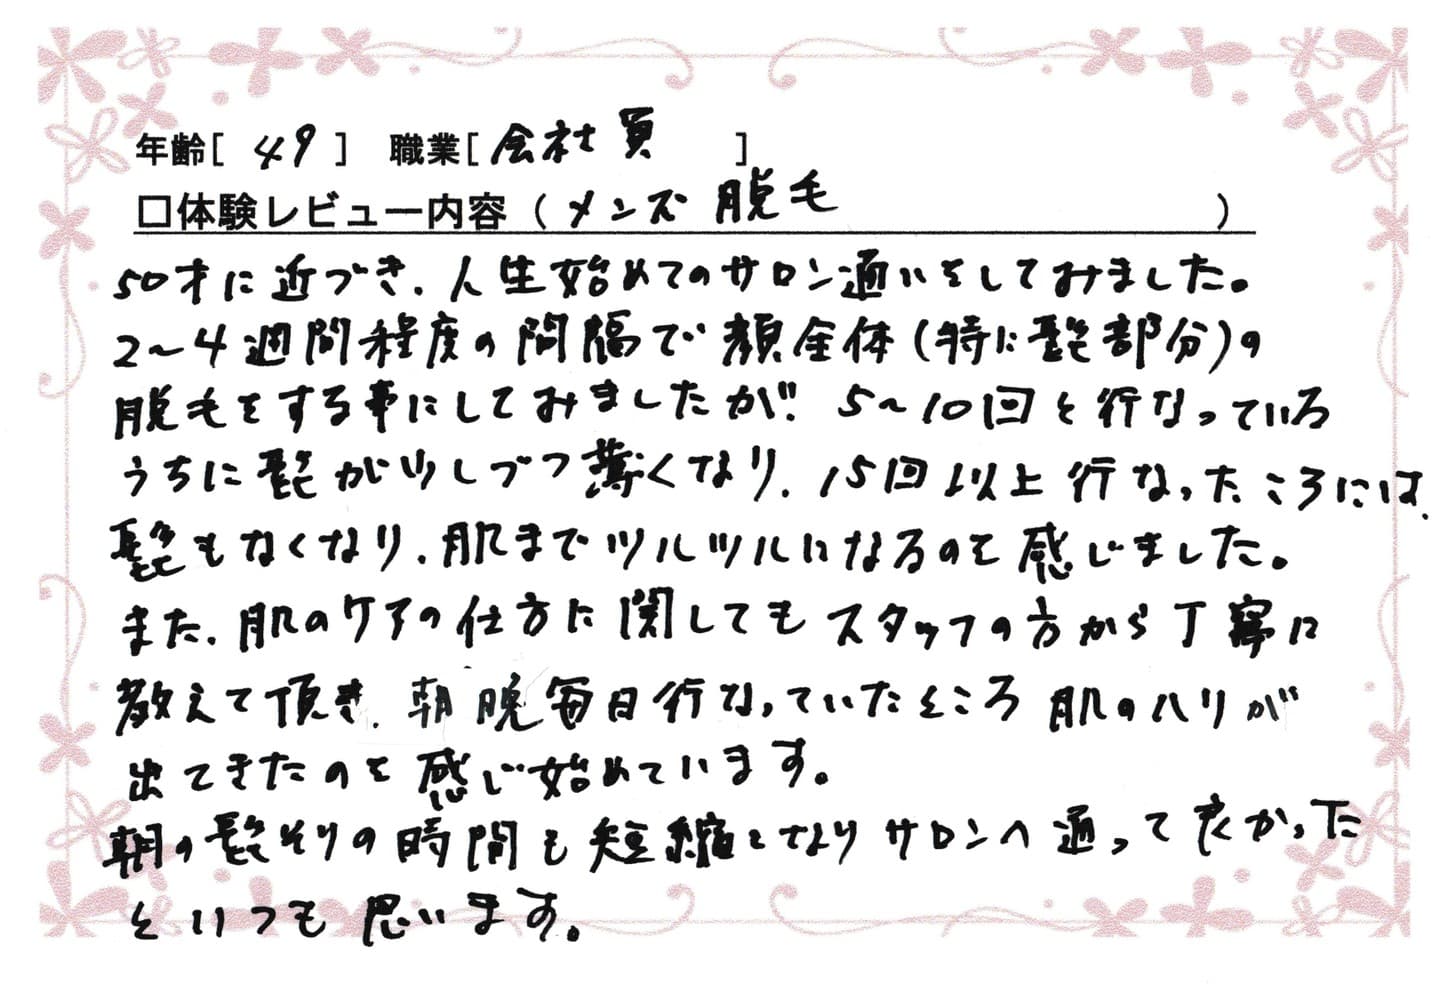 年齢[ 49 ] 職業[ 会社員 ]
□体験レビュー内容（メンズ脱毛 ）
50才に近づき、人生始めてのサロン通いをしてみました。
2～4週間程度の間隔で顔全体(特に髭部分)の
脱毛をする事にしてみましたが!! 5～10回と行なっている
うちに髭が少しづつ薄くなり、15回以上行なったころには、
髭もなくなり、肌までツルツルになるのを感じました。
また、肌のケアの仕方に関してもスタッフの方から丁寧に
教えて頂き、朝晩毎日行なっていたところ肌のハリが
出てきたのを感じ始めています。
朝の髭そりの時間も短縮となりサロンへ通って良かった
といつも思います。